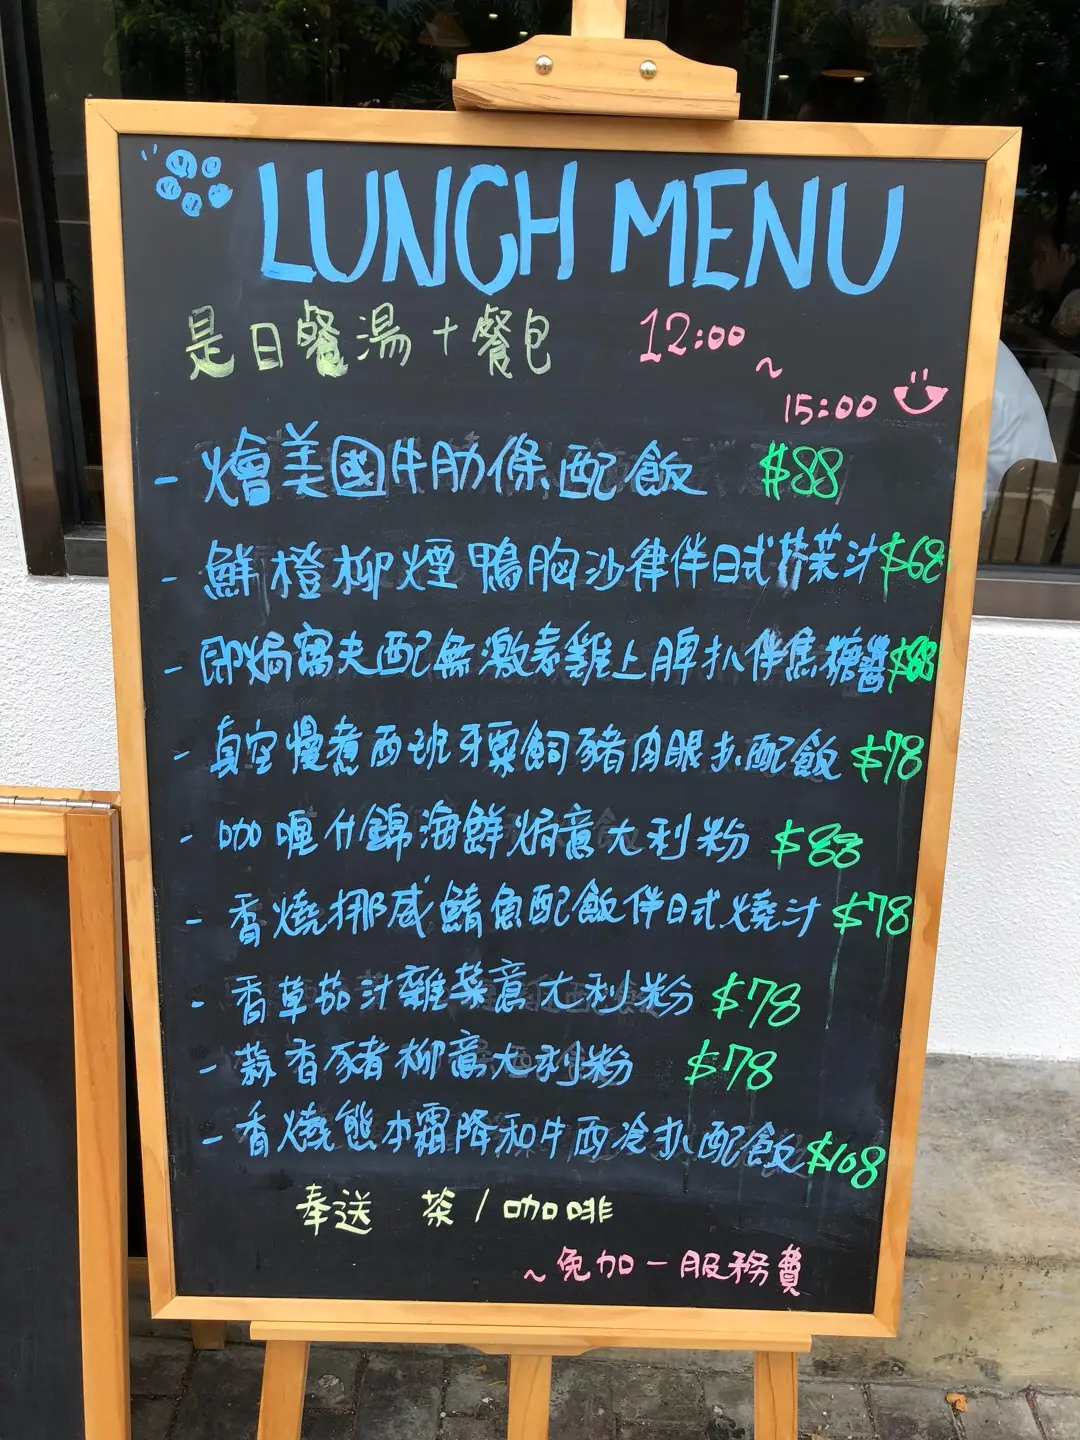 LUNCH MENU
是日餐湯 + 餐包
12:00
~
15:00
- 燴美國牛肋條配飯 $88
- 鮮橙柳煙鴨胸沙律伴日式芥茉汁 $68
- 即焗窩夫配無激素雞上脾扒伴焦糖醬
- 真空慢煮西班牙栗飼豬肉眼扒配飯 $78
- 咖喱什錦海鮮焗意大利粉 $88
- 香燒挪威鯖魚配飯伴日式燒汁 $78
- 香草茄汁雜菜意大利粉 $78
- 蒜香豬柳意大利粉 $78
- 香燒熊本霜降和牛西冷扒配飯 $108
奉送 茶 / 咖啡
~ 免加一服務費